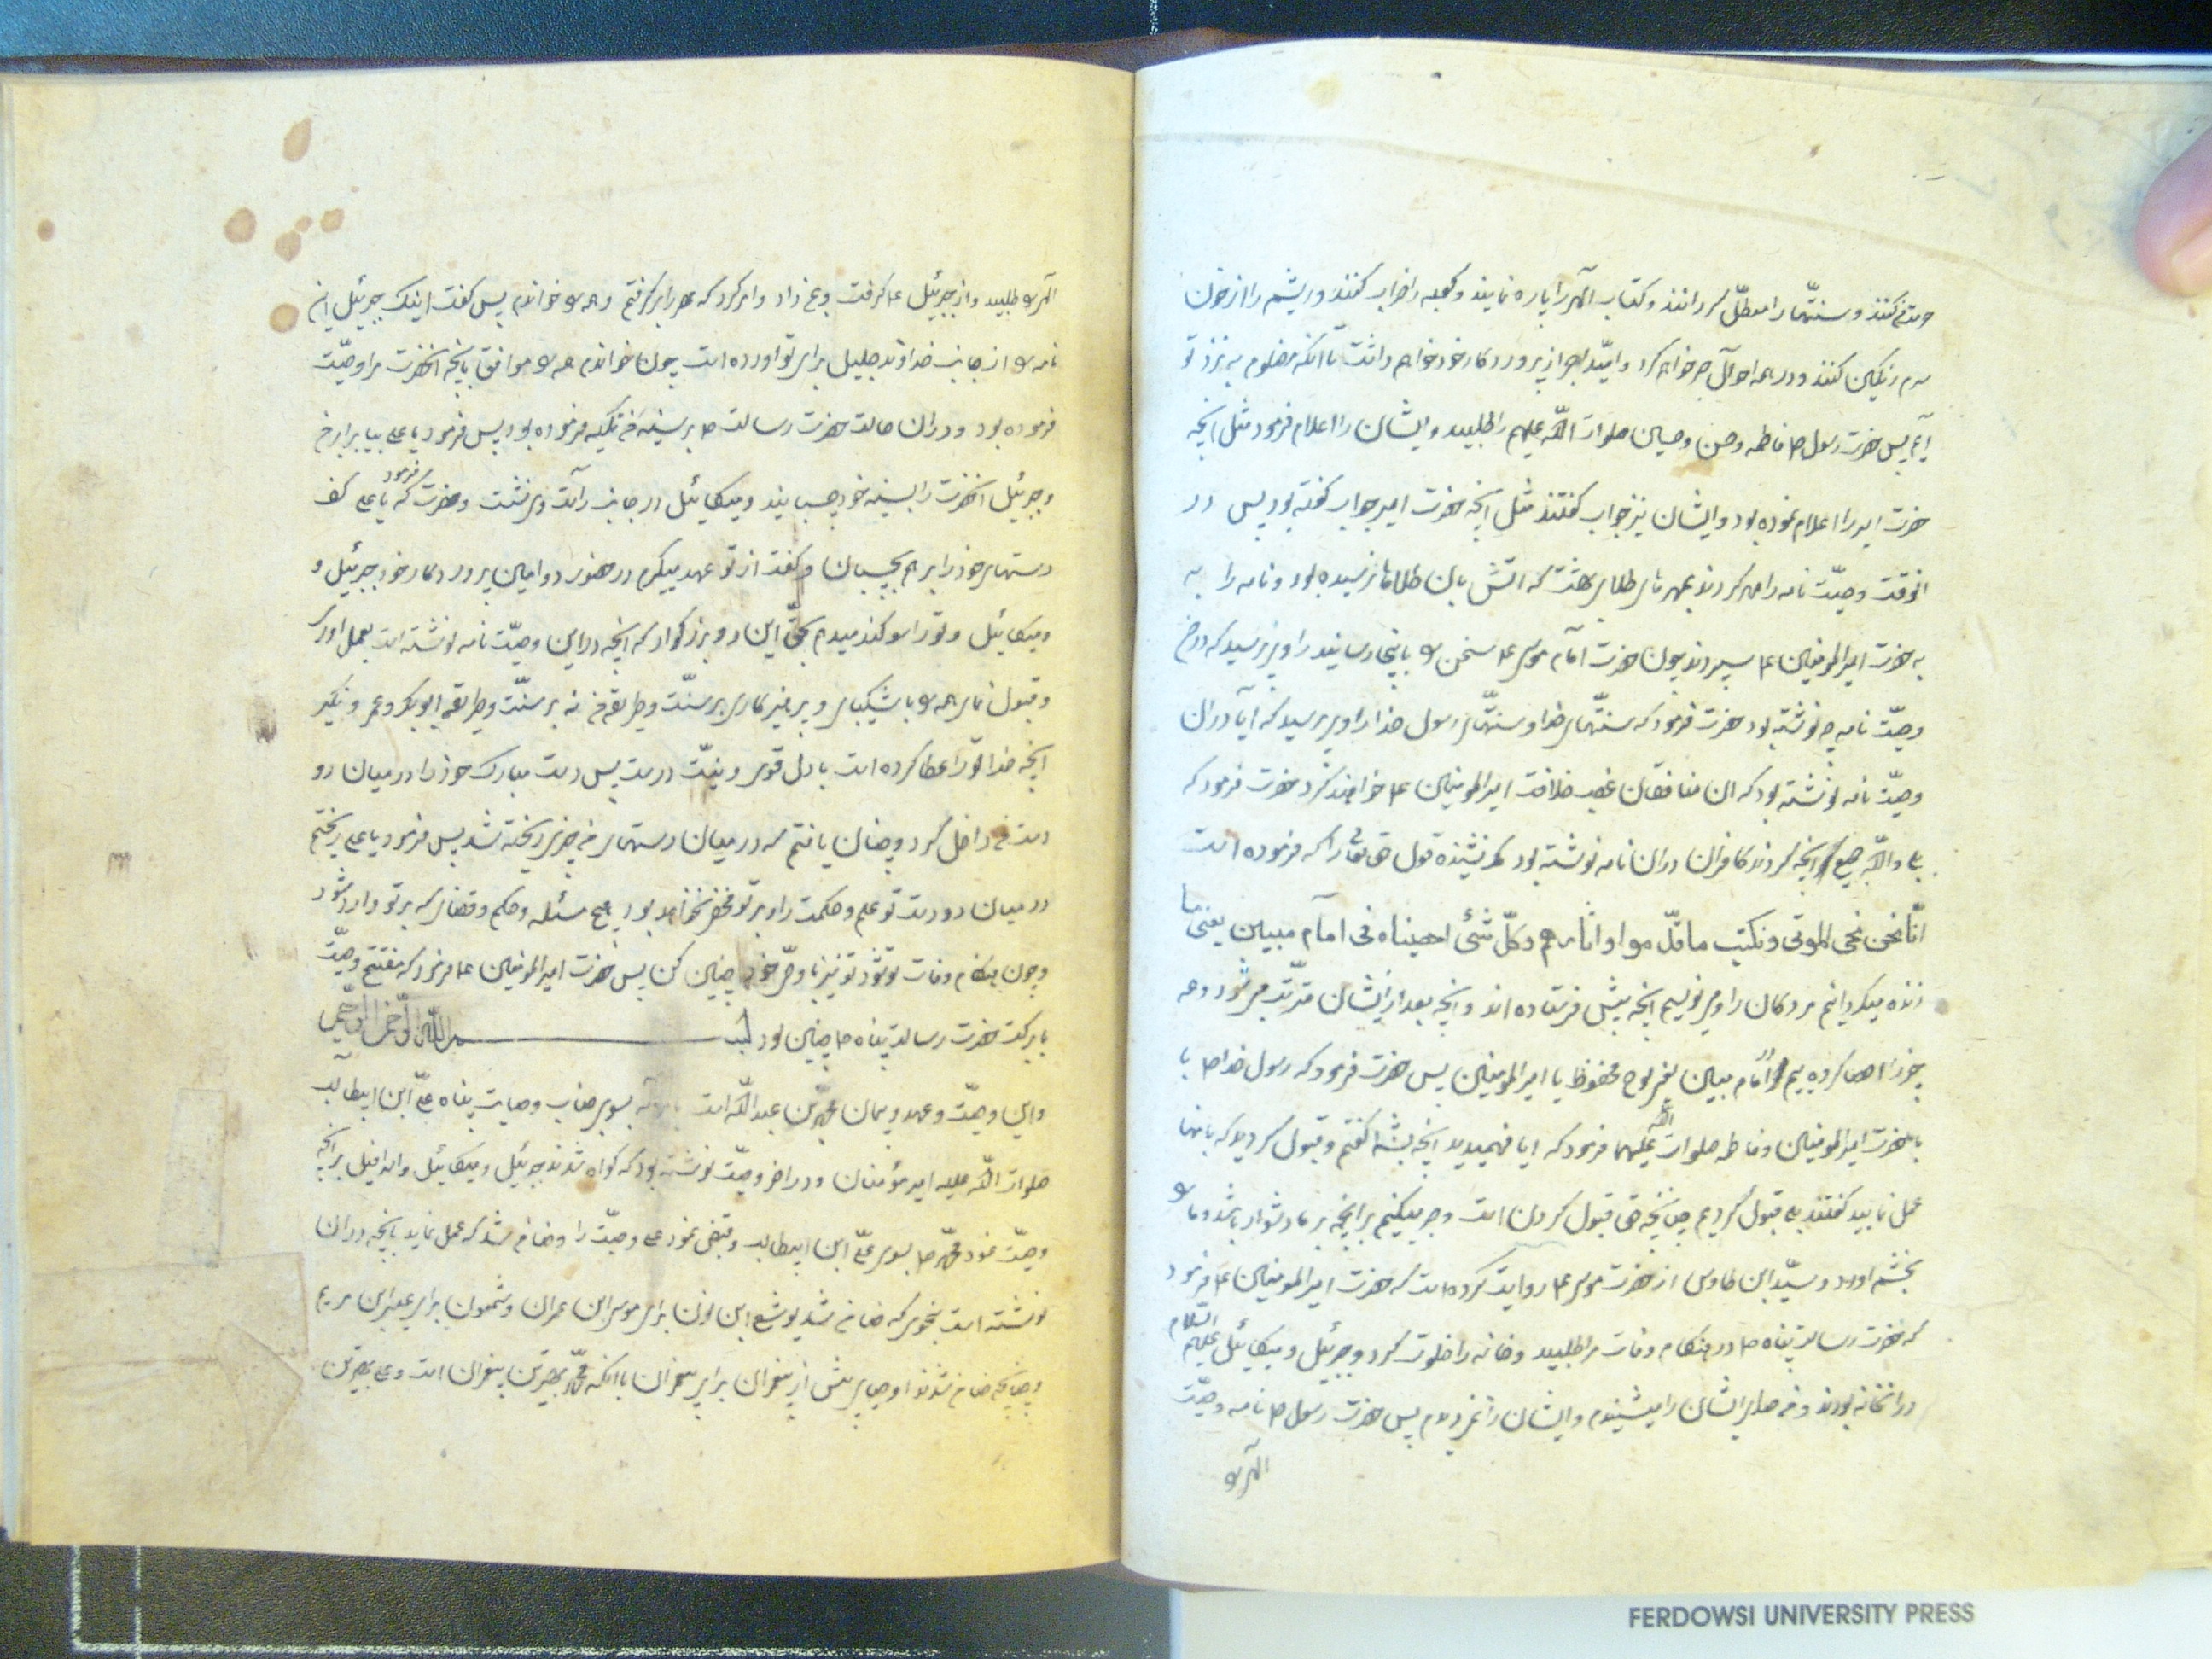 کنند و سنتها را معطل گردانند و کتاب الهی را پاره نمایند و کعبه را خراب کنند و ریشم را از خون
سرم رنگین کنند و در همه احوال صبر خواهم کرد و امید اجر از پروردگار خود خواهم داشت تا آنکه مظلوم به نزد تو
آیم پس حضرت رسول ص فاطمه و حسن و حسین صلوات الله علیهم را طلبید و ایشان را اعلام فرمود مثل آنچه
حضرت امیر را اعلام نموده بود و ایشان نیز جواب گفتند مثل آنچه حضرت امیر جواب گفته بود پس در
آنوقت وصیت نامه را مهر کردند بمهرهای طلای بهشت که آتش بان طلاها نرسیده بود و نامه را به
به حضرت امیرالمومنین ع سپردند چون حضرت امام موسی ع سخن را باینجا رسانید راوی پرسید که در
وصیت نامه چه نوشته بود حضرت فرمود که سنتهای خدا و سنتهای رسول خدا راوی پرسید که آیا در آن
وصیت نامه نوشته بود که آن منافقان غصب خلافت امیرالمومنین ع خواهند کرد حضرت فرمود که
بلی والله جمیع آنچه کردند کافران در آن نامه نوشته بود مگر نشنیده قول حق تعالی را که فرموده است
انّا نحن نحی الموتی و نکتب ما قدّموا و اثارهم و کلّ شئ احصیناه فی امام مبین یعنی ما
زنده میگردانیم مردگان را و می نویسیم آنچه پیش فرستاده اند و آنچه بعد از ایشان مترتب می شود و همه
چیز را احصا کرده ایم در امام مبین یعنی لوح محفوظ یا امیرالمومنین پس حضرت فرمود که رسول خدا ص با
با حضرت امیرالمومنین و فاطمه صلوات الله علیهما فرمود که ایا فهمیدید آنچه بشما گفتم و قبول کردید که بانها
عمل نمایید گفتند بلی قبول کردیم چنانچه حق قبول کردن است و صبر میکنیم بر آنچه بر ما دشوار باشد و ما را
بخشم آورد و سید ابن طاوس از حضرت موسی ع روایت کرده است که حضرت امیرالمومنین ع فرمود
که حضرت رسالت پناه ص در هنگام وفات مرا طلبید و خانه را خلوت کرد و جبرئیل و میکائیل علیهم السلام
در آنخانه بودند و من صدای ایشان را میشنیدم و ایشان را نمی دیدم پس حضرت رسول ص نامه وصیت
الهی را
الهی را طلبید و از جبرئیل ع گرفت و بمن داد و امر کرد که مهر را برگرفتم و همه را خواندم پس گفت اینک جبرئیل این
نامه را از جانب خداوند جلیل برای تو آورده است چون خواندم همه را موافق بانچه آنحضرت مرا وصیت
فرموده بود و در آن حالت حضرت رسالت ص بر سینه من تکیه فرموده بود پس فرمود یا علی بیا برابر من
و جبرئیل آنحضرت را بسینه خود چسبانید و میکائیل در جانب راست وی نشست و حضرت فرمود که یا علی کف
دستهای خود را برهم بچسبان و گفت از تو عهد میگیرم در حضور دو امین پروردگار خود جبرئیل و
میکائیل و تو را سوگند میدهم بحق این دو بزرگوار که آنچه در این وصیت نامه نوشته است بعمل آوری
و قبول نمای همه را با شیکبای و پرهیزکاری بر سنت و طریقه من نه بر سنت و طریقه ابوبکر و عمر و بگیر
آنچه خدا تو را عطا کرده است با دل قوی و نیت درست پس دست مبارک خود را در میان دو
دست من داخل کرد و چنان یافتم که در میان دستهای من چیزی ریخته شد پس فرمود یا علی ریختم
در میان دو دست تو علم و حکمت را و بر تو مخفی نخواهد بود هیچ مسئله و حکم و قضای که بر تو وارد شود
و چون هنگام وفات تو شود تو نیز با وصی خود چنین کن پس حضرت امیرالمومنین ع فرمود که مفتتح وصیت
بابرکت حضرت رسالت پناه ص چنین بود بسم الله الرحمن الرحیم
و این وصیت و عهد و پیمان محمد بن عبدالله است بسوی جناب وصایت پناه علی ابن ابیطالب
صلوات الله علیه امیر مؤمنان و در آخر وصیت نوشته بود که گواه شدند جبرئیل و میکائیل و اسرافیل بر آنچه
وصیت نمود محمد ص بسوی علی ابن ابیطالب و قبض نمود علی وصیت را و ضامن شد که عمل نماید بانچه در آن
نوشته است بنحوی که ضامن شد یوشع ابن نون برای موسی ابن عمران و شمعون برای عیسی ابن مریم
و چنانچه ضامن شدند اوصیای پیش از پیغمبران برای پیغمبران با آنکه محمد بهترین پیغمبران است و علی بهترین
FERDOWSI UNIVERSITY PRESS